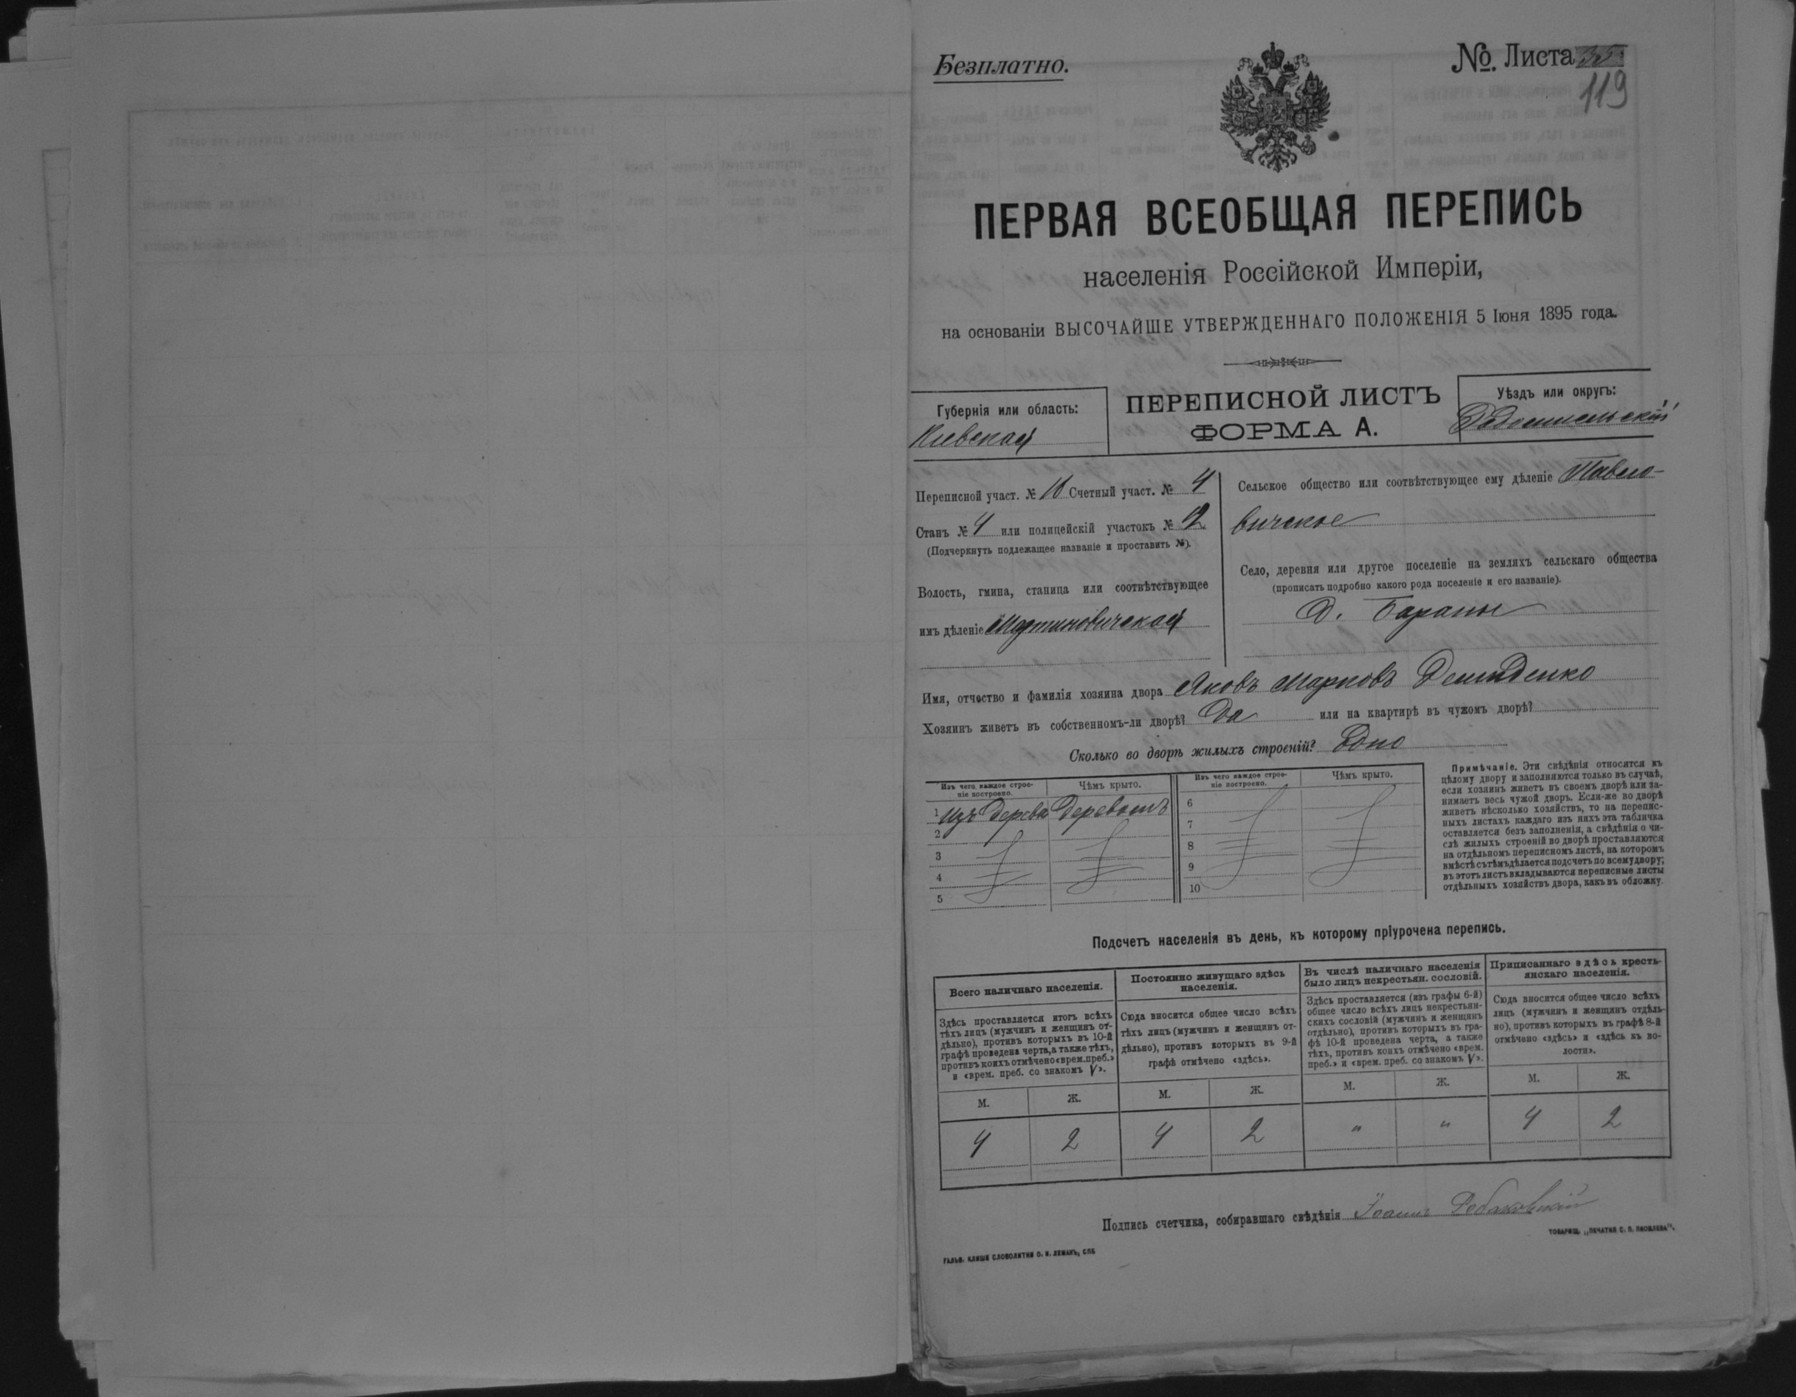 Безплатно.
№. Листа 35
119
ПЕРВАЯ ВСЕОБЩАЯ ПЕРЕПИСЬ
населенія Россійской Имперіи,
на основаніи ВЫСОЧАЙШЕ УТВЕРЖДЕННАГО ПОЛОЖЕНІЯ 5 Іюня 1895 года.
Губернія или область:
Кіевская
ПЕРЕПИСНОЙ ЛИСТЪ
ФОРМА А.
Уѣздъ или округъ:
Радомысльскій
Переписной участ. № 10 Счетный участ. № 4
Станъ № 4 или полицейскій участокъ № 12
(Подчеркнуть подлежащее названіе и проставить №).
Волость, гмина, станица или соотвѣтствующее
имъ дѣленіе Мартиновичская
Сельское общество или соотвѣтствующее ему дѣленіе Павло-
вичское
Село, деревня или другое поселеніе на земляхъ сельскаго общества
(прописать подробно какого рода поселеніе и его названіе).
д. Бараны
Имя, отчество и фамилія хозяина двора Яковъ Марковъ Демиденко
Хозяинъ живетъ въ собственномъ-ли дворѣ? Да или на квартирѣ въ чужомъ дворѣ?
Сколько во дворѣ жилыхъ строеній? Одно
Изъ чего каждое строе-
ніе построено.
Чѣмъ крыто.
1 изъ дерева деревомъ
2
3
4
5
Изъ чего каждое строе-
ніе построено.
Чѣмъ крыто.
6
7
8
9
10
Примѣчаніе. Эти свѣдѣнія относятся къ
цѣлому двору и заполняются только въ случаѣ,
если хозяинъ живетъ въ своемъ дворѣ или за-
нимаетъ весь чужой дворъ. Если-же во дворѣ
живетъ нѣсколько хозяйствъ, то на перепис-
ныхъ листахъ каждаго изъ нихъ эта табличка
оставляется безъ заполненія, а свѣдѣнія о чи-
слѣ жилыхъ строеній во дворѣ проставляются
на отдѣльномъ переписномъ листѣ, на которомъ
вмѣстѣ съ тѣмъ дѣлается подсчетъ по всему двору;
въ этотъ листъ вкладываются переписные листы
отдѣльныхъ хозяйствъ двора, какъ въ обложку.
Подсчетъ населенія въ день, къ которому пріурочена перепись.
Всего наличнаго населенія.
Здѣсь проставляется итогъ всѣхъ
тѣхъ лицъ (мужчинъ и женщинъ от-
дѣльно), противъ которыхъ въ 10-й
графѣ проведена черта, а также тѣхъ,
противъ коихъ отмѣчено «врем. преб.»
и «врем. преб. со знакомъ V».
М. Ж.
4 2
Постоянно живущаго здѣсь
населенія.
Сюда вносится общее число всѣхъ
тѣхъ лицъ (мужчинъ и женщинъ от-
дѣльно), противъ которыхъ въ 9-й
графѣ отмѣчено «здѣсь».
М. Ж.
4 2
Въ числѣ наличнаго населенія
было лицъ некрестьян. сословій.
Здѣсь проставляется (изъ графы 6-й)
общее число всѣхъ лицъ некрестьян-
скихъ сословій (мужчинъ и женщинъ
отдѣльно), противъ которыхъ въ гра-
фѣ 10-й проведена черта, а также
тѣхъ, противъ коихъ отмѣчено «врем.
преб.» и «врем. преб. со знакомъ V».
М. Ж.
" "
Приписаннаго здѣсь кресть-
янскаго населенія.
Сюда вносится общее число всѣхъ
лицъ (мужчинъ и женщинъ отдѣль-
но), противъ которыхъ въ графѣ 8-й
отмѣчено «здѣсь» и «здѣсь въ во-
лости».
М. Ж.
4 2
Подпись счетчика, собиравшаго свѣдѣнія Іоаннъ
ГАЛЬВ. КЛИШЕ СЛОВОЛИТНИ О. И. ЛЕМАНЪ, СПБ
ТОВАРИЩ. „ПЕЧАТНЯ С. П. ЯКОВЛЕВА".